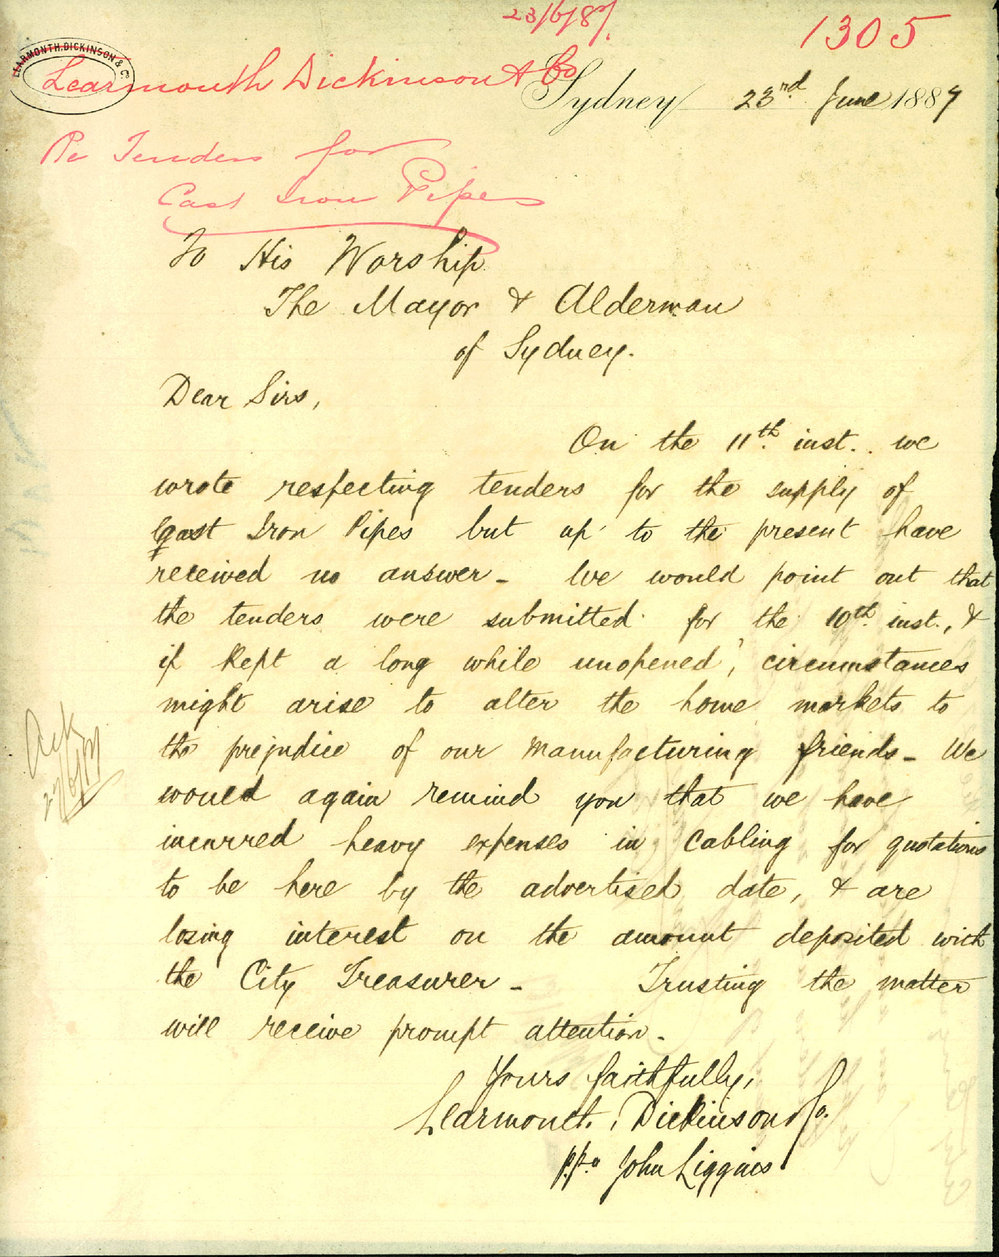 23/6/87.
1305
LEARMONTH, DICKINSON & Co
Learmonth Dickinson & Co
Sydney 23rd June 1887
Re Tenders for
Cast Iron Pipes
To His Worship
The Mayor & Alderman
of Sydney.
Dear Sirs,
On the 11th inst. we
wrote respecting tenders for the supply of
Cast Iron Pipes but up to the present have
received no answer - We would point out that
the tenders were submitted for the 10th inst., &
if kept a long while unopened, circumstances
might arise to alter the home markets to
the prejudice of our manufacturing friends - We
would again remind you that we have
incurred heavy expenses in cabling for quotations
to be here by the advertised date, & are
losing interest on the amount deposited with
the City Treasurer - Trusting the matter
will receive prompt attention -
Yours faithfully,
Learmonth, Dickinson & Co.
p.pro John Liggins
Ack
27/6/87